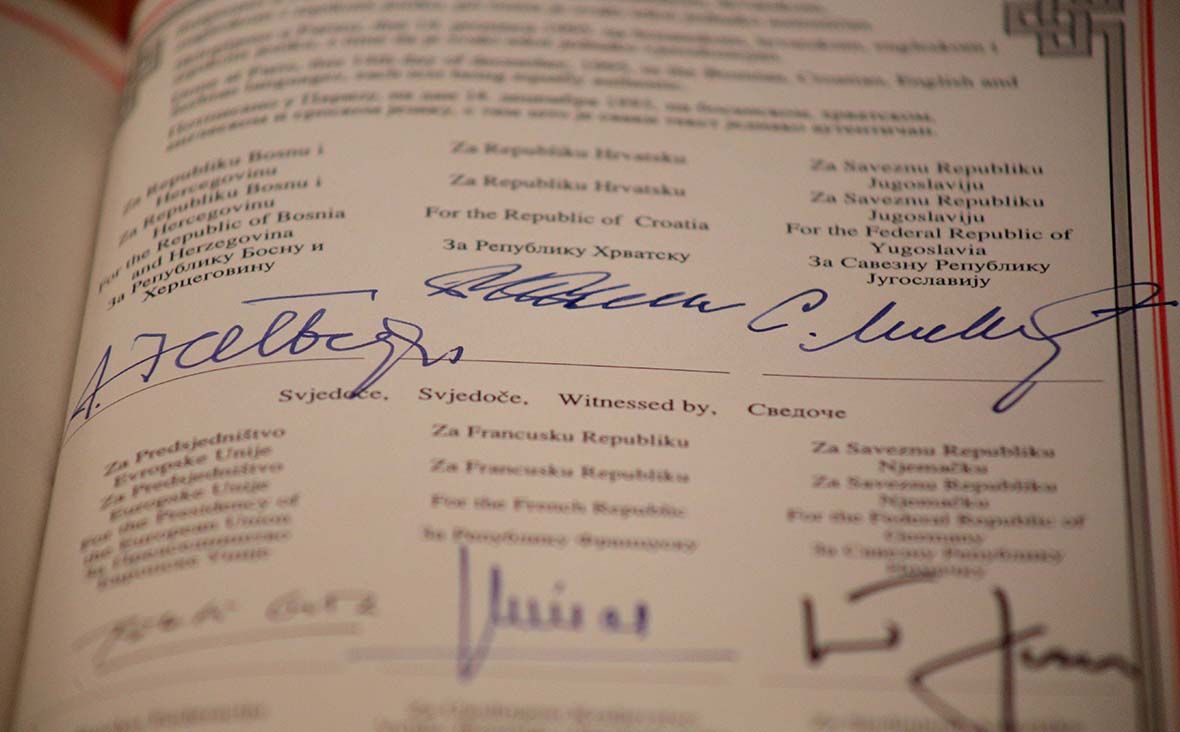 Done at Paris, this 14th day of December, 1995, in the Bosnian, Croatian, English and
Serbian languages, each text being equally authentic.
Потписано у Паризу, на дан 14. децембра 1995, на босанском, хрватском,
енглеском и српском језику, с тим што је сваки текст једнако аутентичан.
Za Republiku Bosnu i
Hercegovinu
Za Republiku Bosnu i
Hercegovinu
For the Republic of Bosnia
and Herzegovina
За Републику Босну и
Херцеговину
Za Republiku Hrvatsku
Za Republiku Hrvatsku
For the Republic of Croatia
За Републику Хрватску
Za Saveznu Republiku
Jugoslaviju
Za Saveznu Republiku
Jugoslaviju
For the Federal Republic of
Yugoslavia
За Савезну Републику
Југославију
Svjedoče, Svjedoče, Witnessed by, Сведоче
Za Predsjedništvo
Evropske Unije
Za Predsjedništvo
Europske Unije
For the Presidency of
the European Union
За Председништво
Европске Уније
Za Francusku Republiku
Za Francusku Republiku
For the French Republic
За Републику Француску
Za Saveznu Republiku
Njemačku
Za Saveznu Republiku
Njemačku
For the Federal Republic of
Germany
За Савезну Републику